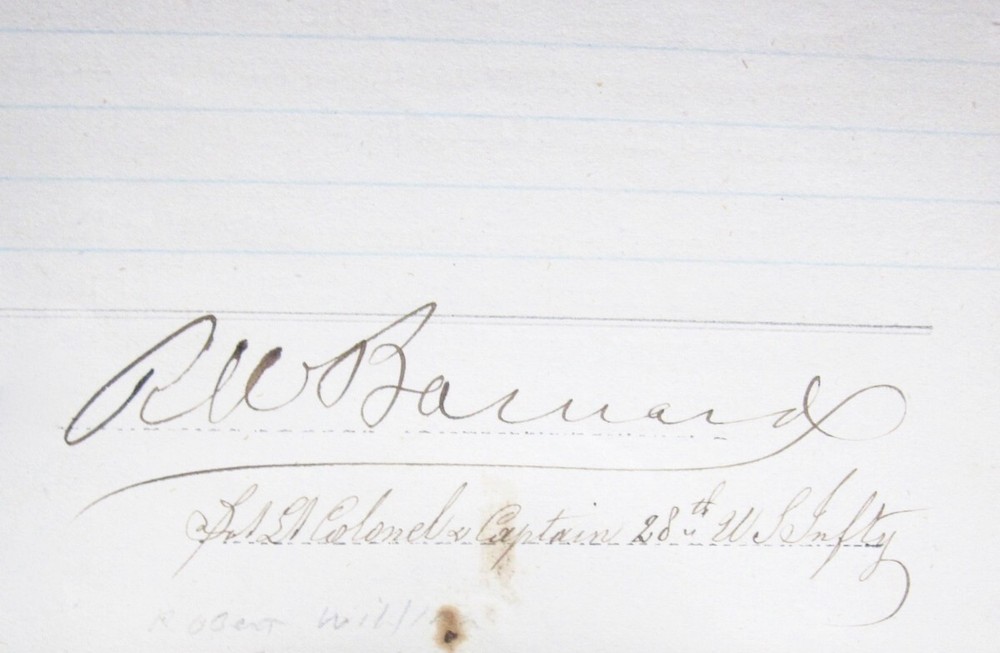 R W Barnard
Bvt Lt Colonel & Captain 28th U S Infty
Robert William